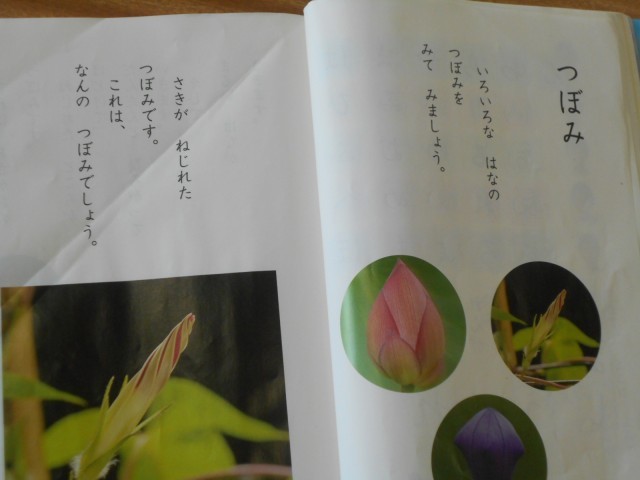 つぼみ
いろいろな はなの
つぼみを
みて みましょう。
さきが ねじれた
つぼみです。
これは、
なんの つぼみでしょう。